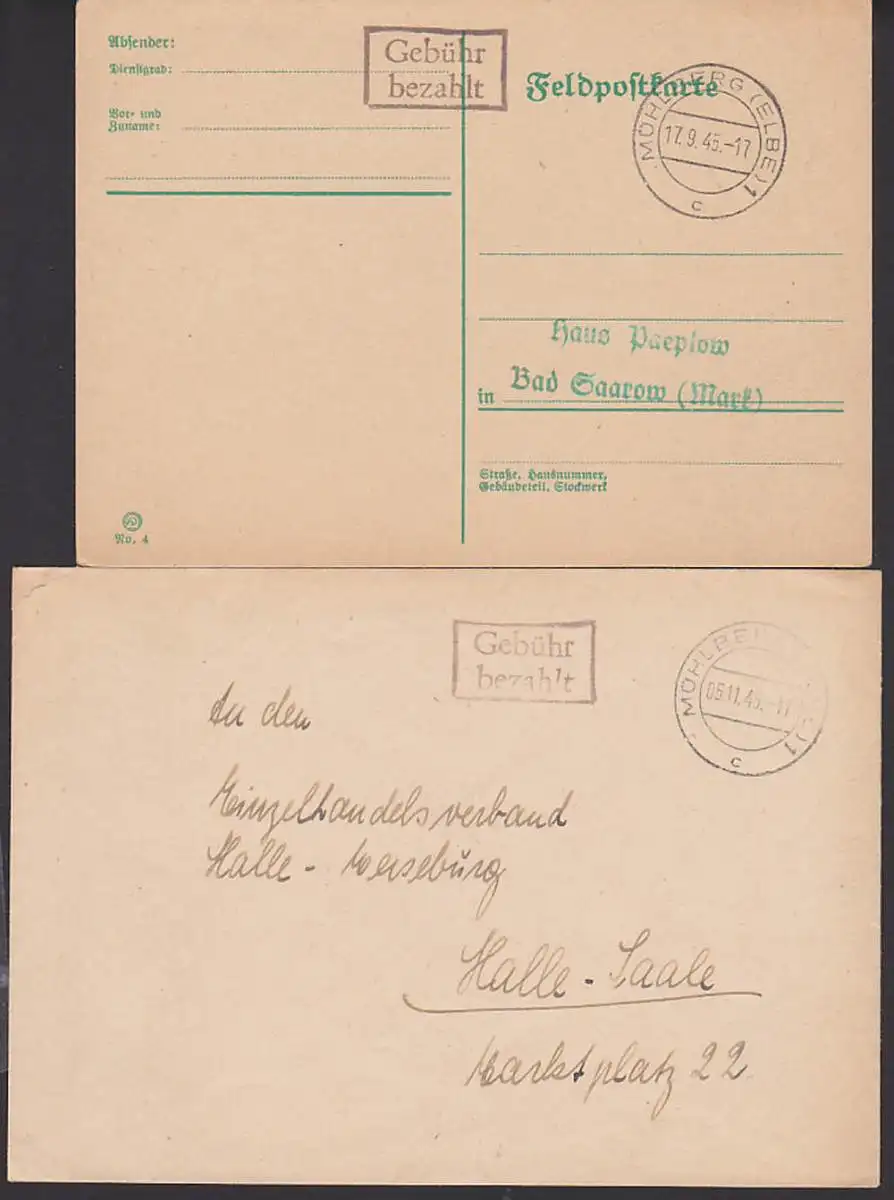 Absender:
Dienstgrad:
Vor- und
Zuname:
Gebühr
bezahlt
Feldpostkarte
MÜHLBERG (ELBE) 1
17.9.45.-17
c
Haus Paeplow
in Bad Saarow (Mark)
Straße, Hausnummer,
Gebäudeteil, Stockwerk
No. 4
Gebühr
bezahlt
MÜHLBE
05.11.45.-17
) 1
c
An den
Einzelhandelsverband
Halle - Merseburg
Halle - Saale
Marktplatz 22